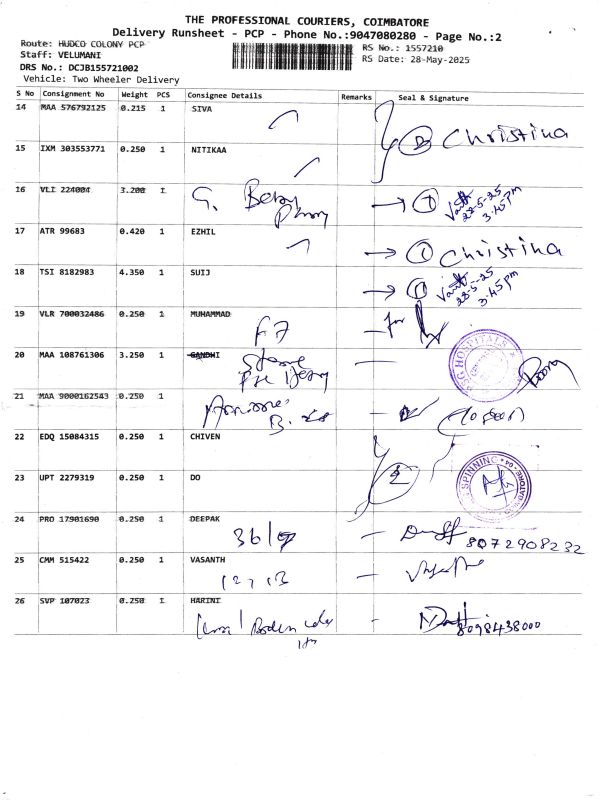 THE PROFESSIONAL COURIERS, COIMBATORE
Delivery Runsheet - PCP - Phone No.:9047080280 - Page No.:2
Route: HUDCO COLONY PCP
RS No.: 1557210
Staff: VELUMANI
RS Date: 28-May-2025
DRS No.: DCJB155721002
Vehicle: Two Wheeler Delivery
S No Consignment No Weight PCS Consignee Details Remarks Seal & Signature
14 MAA 576792125 0.215 1 SIVA
Christina
15 IXM 303553771 0.250 1 NITIKAA
16 VLI 224004 3.200 1
G. 28-5-25
3:45pm
17 ATR 99683 0.420 1 EZHIL
1 Christina
18 TSI 8182983 4.350 1 SUIJ
28-5-25
3:45pm
19 VLR 700032486 0.250 1 MUHAMMAD
F7 for
20 MAA 108761306 3.250 1 GANDHI
HOSPITALS
21 MAA 9000162543 0.250 1
22 EDQ 15084315 0.250 1 CHIVEN
23 UPT 2279319 0.250 1 DO
2 SPINNING
24 PRO 17901690 0.250 1 DEEPAK
36/ 8072908232
25 CMM 515422 0.250 1 VASANTH
12, 13
26 SVP 107023 0.250 1 HARINI
8098438000